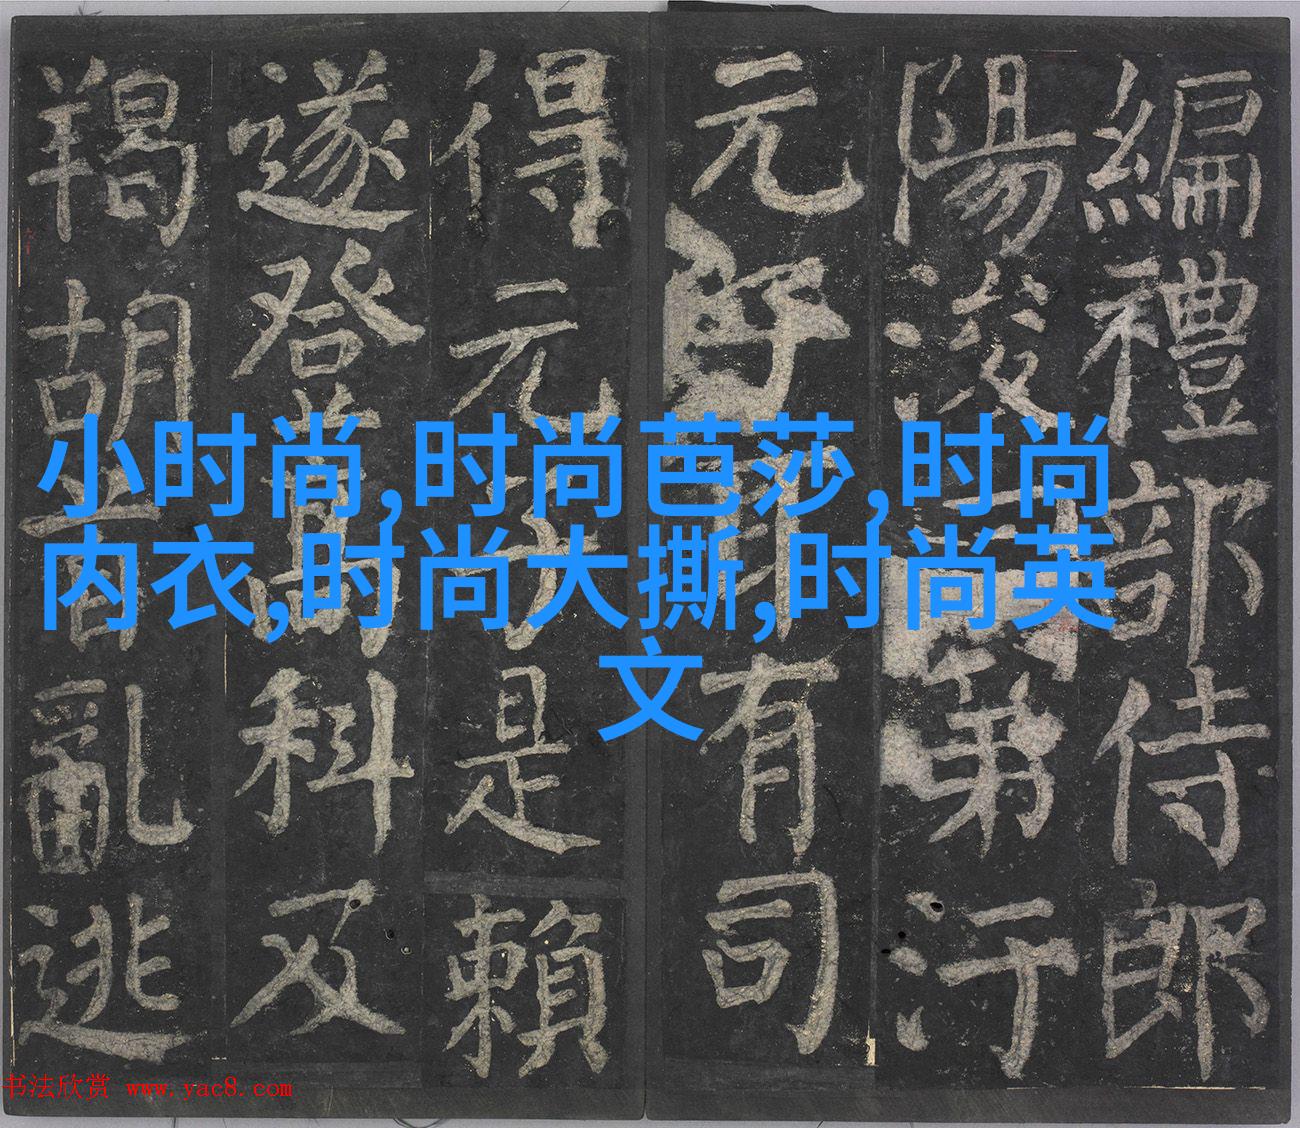 編禮部侍郎
陽浚第汙
元子耳有司
得元子是賴
遂登高科及
羯胡首亂逃
小时尚,时尚芭莎,时尚
内衣,时尚大撕,时尚英
文
书法欣赏 www.yac8.com